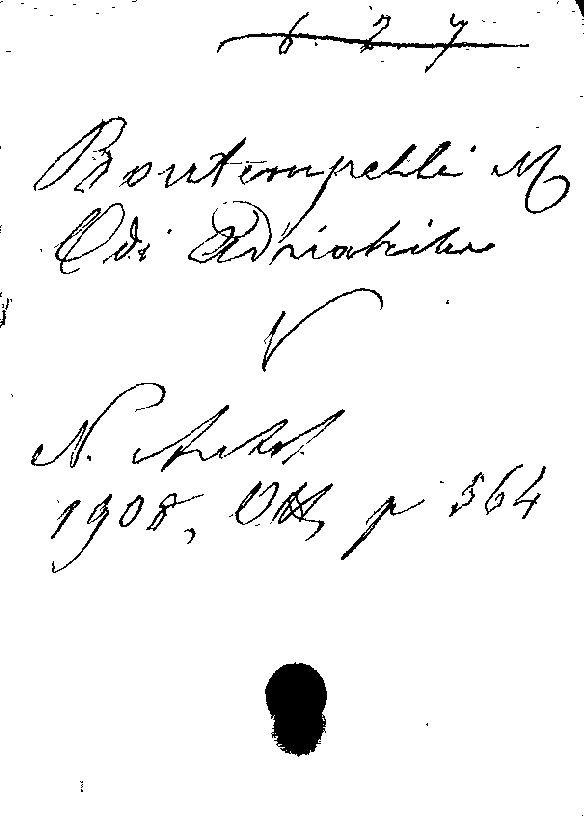 6 2 7
Bontempelli M
Odi Adriatiche
V
N. Antol.
1908, Ott, p 564